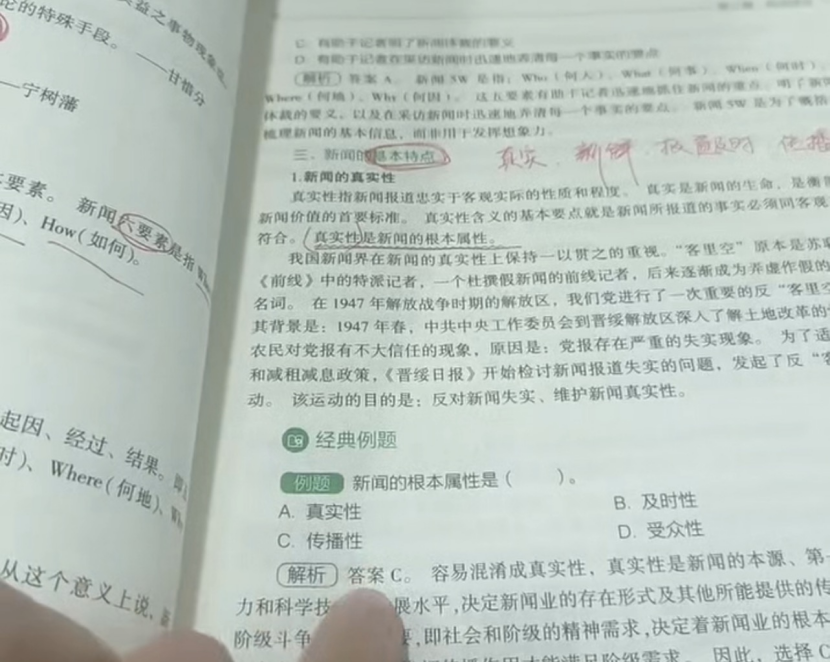 论的特殊手段。
——甘惜分
—宁树藩
要素。 新闻六要素是指
因)、How(如何)。
起因、经过、结果。
时)、Where(何地)、
从这个意义上说,
C. 有助于记者明了新闻体裁的要义
D. 有助于记者在采访新闻时迅速地弄清每一个事实的要点
解析 答案 A。 新闻 5W 是指:Who(何人)、What(何事)、When(何时)、
Where(何地)、Why(何因)。 这五要素有助于记者迅速地抓住新闻的重点,明了新闻
体裁的要义,以及在采访新闻时迅速地弄清每一个事实的要点。 新闻 5W 是为了
梳理新闻的基本信息,而非用于发挥想象力。
三、新闻的基本特点 真实、新鲜、报道及时、传播
1.新闻的真实性
真实性指新闻报道忠实于客观实际的性质和程度。 真实是新闻的生命,是衡
新闻价值的首要标准。 真实性含义的基本要点就是新闻所报道的事实必须同客观
符合。 真实性是新闻的根本属性。
我国新闻界在新闻的真实性上保持一以贯之的重视。“客里空”原本是苏联
《前线》中的特派记者,一个杜撰假新闻的前线记者,后来逐渐成为弄虚作假的
名词。 在 1947 年解放战争时期的解放区,我们党进行了一次重要的反“客里空
其背景是:1947 年春,中共中央工作委员会到晋绥解放区深入了解土地改革的
农民对党报有不大信任的现象,原因是:党报存在严重的失实现象。 为了适
和减租减息政策,《晋绥日报》开始检讨新闻报道失实的问题,发起了反“客
动。 该运动的目的是:反对新闻失实、维护新闻真实性。
经典例题
例题 新闻的根本属性是( )。
A. 真实性 B. 及时性
C. 传播性 D. 受众性
解析 答案 C。 容易混淆成真实性,真实性是新闻的本源、第一
力和科学技 展水平,决定新闻业的存在形式及其他所能提供的传
阶级斗争 要,即社会和阶级的精神需求,决定着新闻业的根本
能满足阶级需求。 因此,选择 C